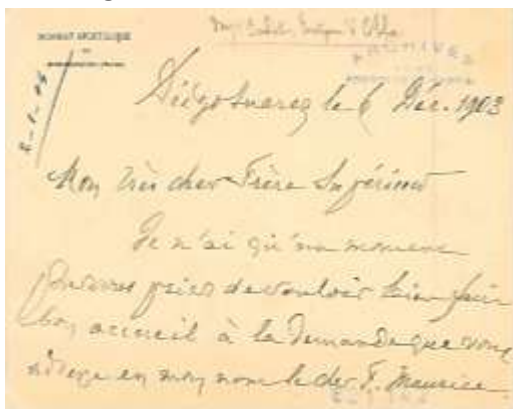 Mgr
ARCHIVES
Diégo Suarez le 6 Déc. 1903
Mon très cher Frère Supérieur
Je n'ai qu'un moment
pour vous prier de vouloir bien faire
bon accueil à la demande que vous
adresse en mon nom le cher F. Maurice